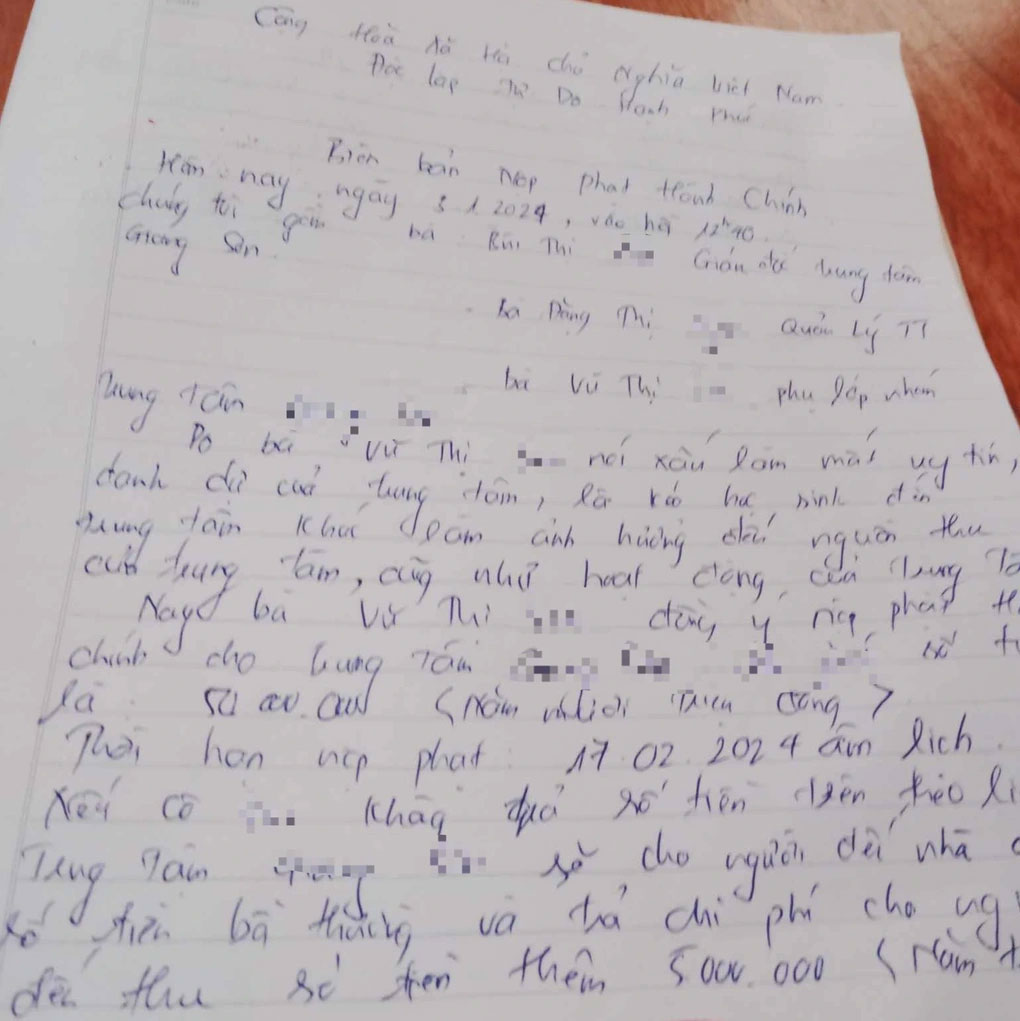 Cộng Hoà Xã Hội chủ Nghĩa Việt Nam
Độc lập Tự Do Hạnh Phúc
Biên bản nộp phạt Hành Chính
Hôm nay ngày 3.1.2024, vào hồi 12h40.
chúng tôi gồm bà Bùi Thị Giám đốc trung tâm
Giang Sơn
- bà Đặng Thị Quản Lý TT
- bà Vũ Thị phụ lớp nhóm
trung tâm
Do bà Vũ Thị nói xấu làm mất uy tín,
danh dự của trung tâm, lôi kéo học sinh đến
trung tâm khác làm ảnh hưởng đến nguồn thu
của trung tâm, cũng như hoạt động của trung
Nay bà Vũ Thị đồng ý nộp phạt
chính cho trung tâm số
là 50.000.000 (Năm mươi triệu đồng)
Thời hạn nộp phạt: 17.02.2024 âm lịch.
Nếu cô không trả số tiền trên theo
Trung Tâm sẽ cho người đến nhà
số tiền bồi thường và trả chi phí cho
đến thu số tiền thêm 5.000.000 (Năm